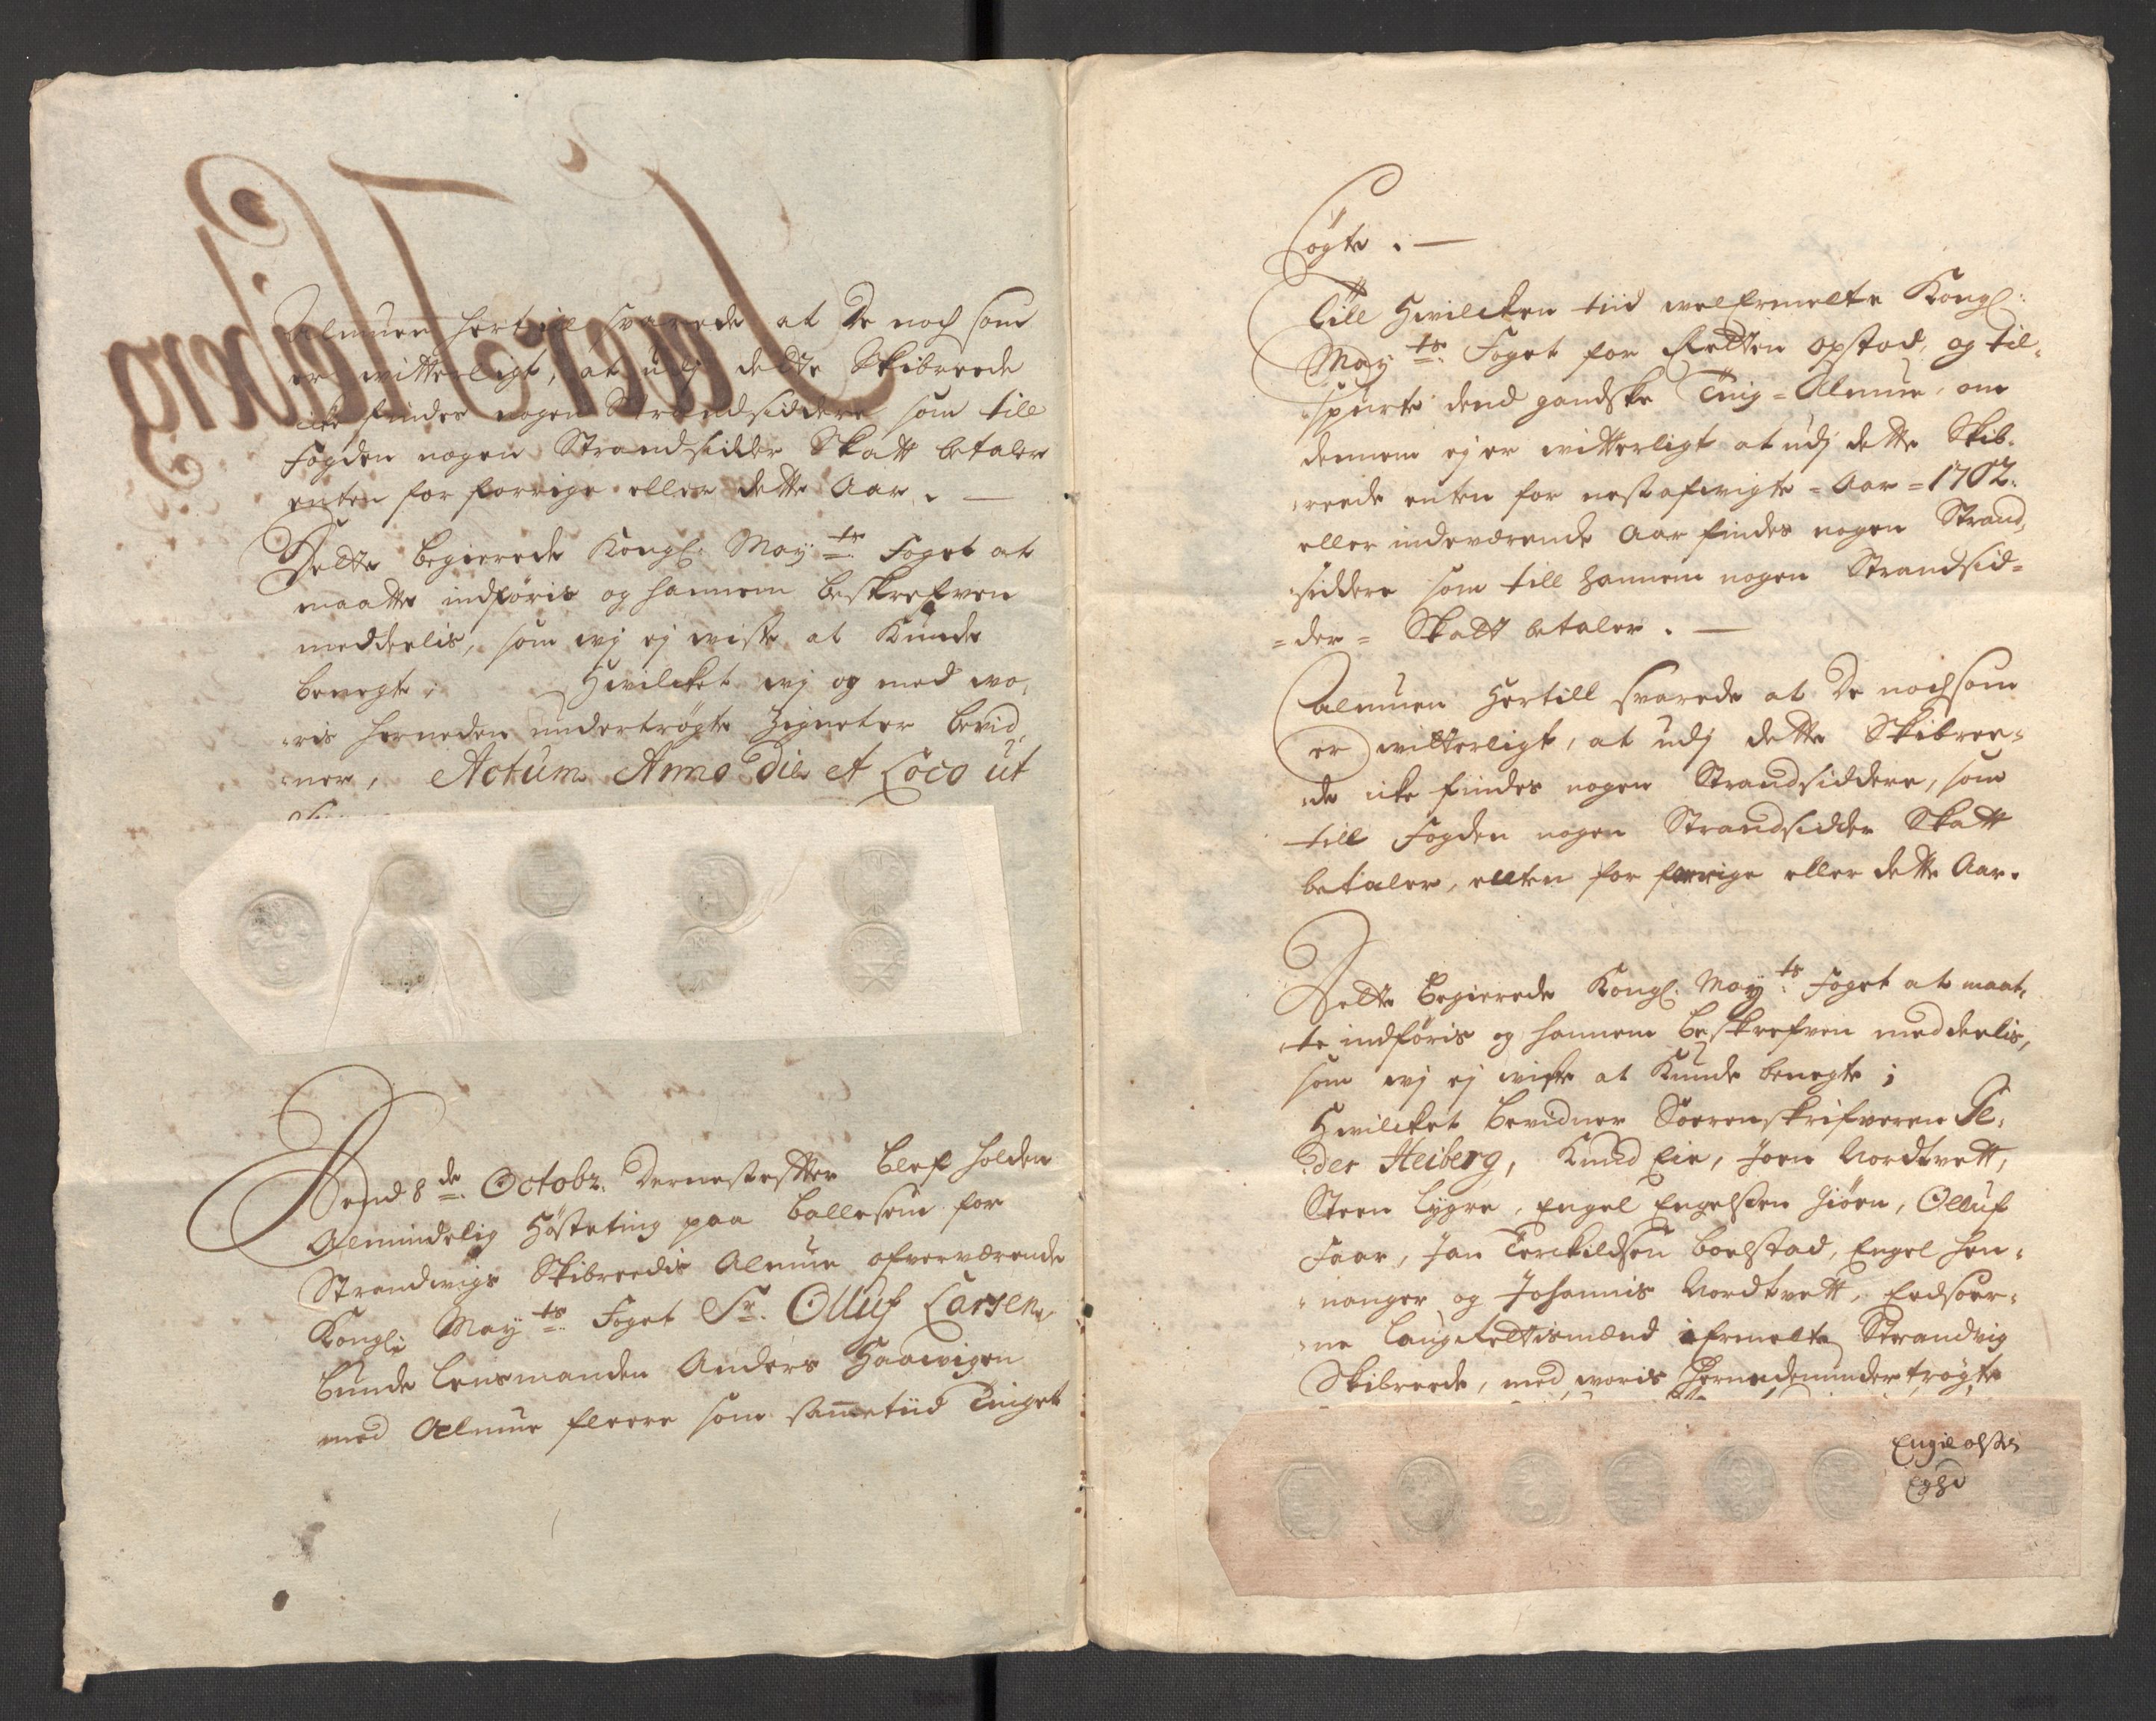 Almuen hertill svarede at De noch som
er vitterligt, at udj dette Skibreede
icke findes nogen Strandsiddere som till
Fogden nogen Strandsidder Skatt betaler
enten for forrige eller dette Aar. —
Dette begierede Kongl: May:ts Foget at
maatte indføris og hannem beskrefven
meddeelis, som wj ej wiste at kunde
benegte: Hvilcket wj og med wo,
,ris herneden undertrøgte Zigneter bevid,
,ner, Actum Anno die et Loco ut
Dend 8de Octobr. Dernestefter blef holden
Almindelig Høsteting paa Ballesem for
Strandwigs Skibreedis Almue ofverværende
Kongl: May:ts Foget Sr. Olluf Larsen,
Bunde Lensmanden Anders Haawigen
med Almue fleere som samme tiid Tinget
Søgte. —
Till Hwilcken tiid welermelte Kongl:
May:ts Foget for Retten opstod, og til,
,spurte dend gandske Ting-Almue, om
dennem ej er witterligt at udj dette Skib,
,reede enten for nest afwigte-Aar-1702.
eller indeværende Aar findes nogen Strand,
,siddere som till hannem nogen Strandsid-
-der- Skatt betaler. —
Almuen Hertill svarede at De noch som
er witterligt, at udj dette Skibree-
,de icke findes nogen Strandsiddere, som
till Fogden nogen Strandsidder Skatt
betaler, enten for forrige eller dette Aar.
Dette begierede Kongl: May:ts Foget at maat,
,te indføris og hannem beskrefven meddeelis,
som wj ej wiste at kunde benegte;
Hwilcket bevidner Soerenskrifveren Pe,
,der Heiberg, Knud Eie, Joen Nordtvett,
Steen Lygre, Engel Engelsen Giøen, Olluf
Faar, Jan Terckildsen Boelstad, Engel Hen,
,nanger og Johannis Nordtvett, Eedsoer,
,ne Laugrettismænd i Ermelte Strandvig
Skibreede, med woris Hernedenunder trøgte
Engel olsen
Egho